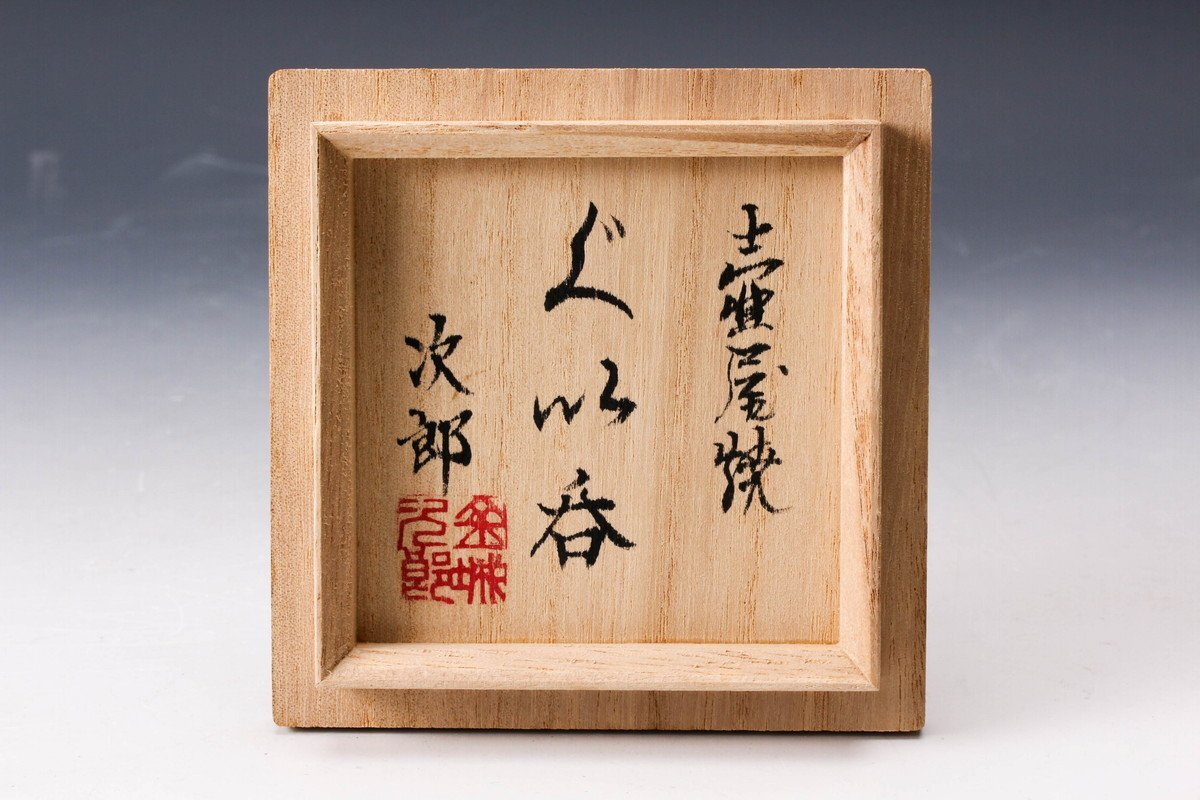 壺屋焼
ぐい呑
次郎
金城次郎